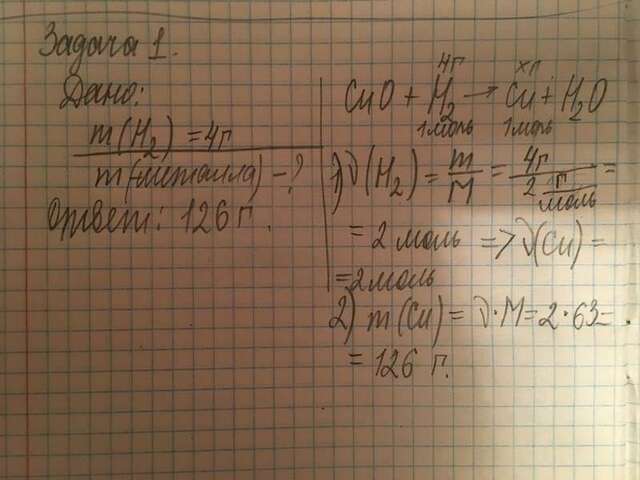 Задача 1.
Дано:
m(H₂) = 4г
m(металла) - ?
Ответ: 126 г.
4г хг
CuO + H₂ → Cu + H₂O
1 моль 1 моль
1) ν(H₂) = m/M = 4г/2 г/моль =
= 2 моль => ν(Cu) =
= 2 моль
2) m(Cu) = ν·M = 2·63 =
= 126 г.